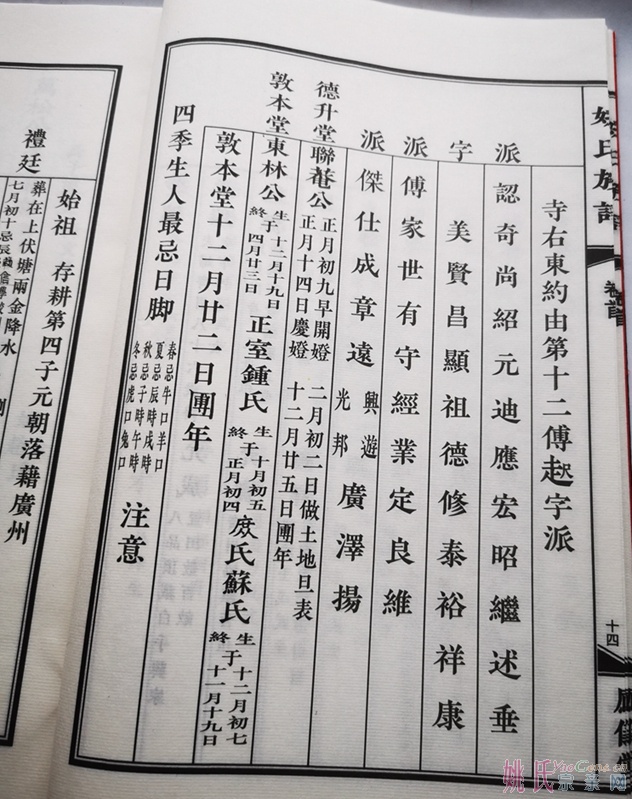 姚氏族譜
卷首
十四
寺右東約由第十二傅起字派
派 認奇尚紹元迪應宏昭繼述垂
字 美賢昌顯祖德修泰裕祥康
派 傅家世有守經業定良維
派 傑仕成章遠 興遊 光邦 廣澤揚
德升堂 聯菴公 正月初九早開燈 二月初二日做土地旦表
正月十四日慶燈 十二月廿五日團年
敦本堂 東林公 生于十二月十九日 終四月廿三日 正室鍾氏 生于十月初五 終正月初四 庻氏蘇氏 生于十二月初七 終十一月十九日
敦本堂十二月廿二日團年
四季生人最忌日脚 春忌牛口羊口 夏忌辰時戌時 秋忌子時午時 冬忌虎口兔口 注意
禮廷
始祖 存耕第四子元朝落藉廣州
葬在上伏塘兩金降水
七月初十忌辰
姚氏宗亲网
YaoGens.cn